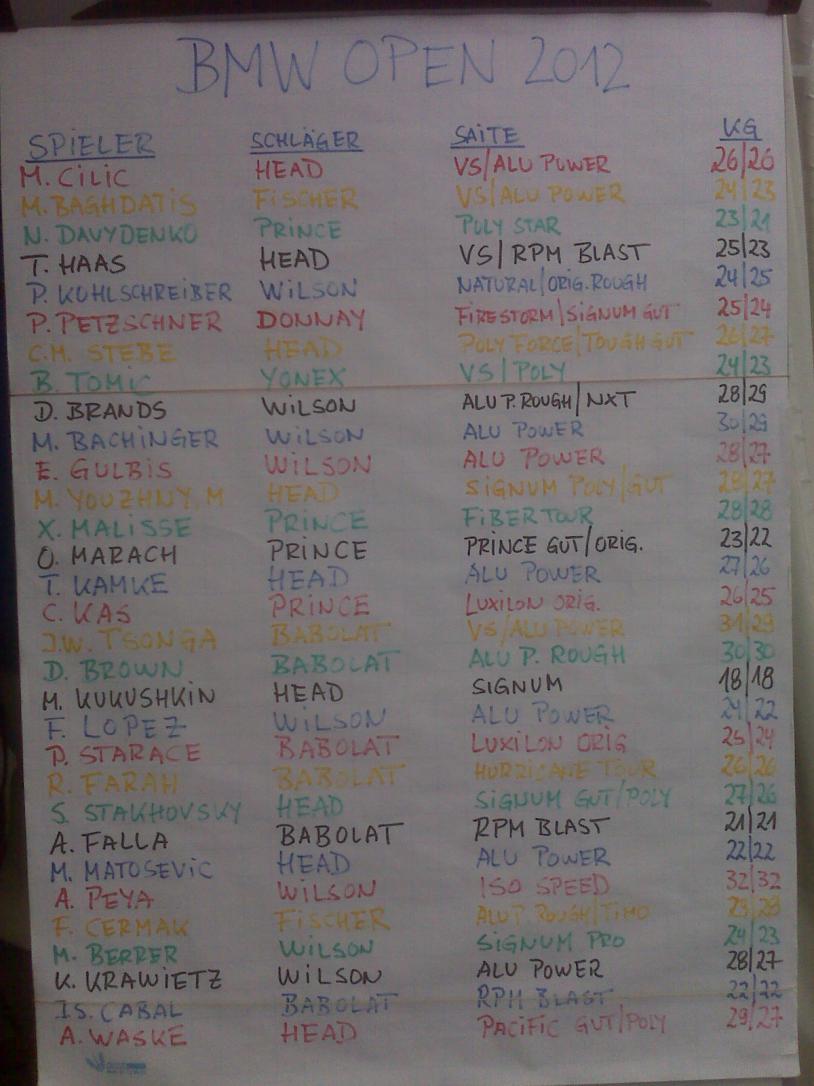 BMW OPEN 2012
SPIELER SCHLÄGER SAITE KG
M. CILIC HEAD VS/ALU POWER 26/26
M. BAGHDATIS FISCHER VS/ALU POWER 24/23
N. DAVYDENKO PRINCE POLY STAR 23/21
T. HAAS HEAD VS/RPM BLAST 25/23
P. KOHLSCHREIBER WILSON NATURAL/ORIG. ROUGH 24/25
P. PETZSCHNER DONNAY FIRESTORM/SIGNUM GUT 25/24
C.M. STEBE HEAD POLY FORCE/TOUGH GUT 26/27
B. TOMIC YONEX VS/POLY 24/23
D. BRANDS WILSON ALU P. ROUGH/NXT 28/29
M. BACHINGER WILSON ALU POWER 30/29
E. GULBIS WILSON ALU POWER 28/27
M. YOUZHNY, M HEAD SIGNUM POLY/GUT 28/27
X. MALISSE PRINCE FIBER TOUR 28/28
O. MARACH PRINCE PRINCE GUT/ORIG. 23/22
T. KAMKE HEAD ALU POWER 27/26
C. KAS PRINCE LUXILON ORIG. 26/25
J.W. TSONGA BABOLAT VS/ALU POWER 31/29
D. BROWN BABOLAT ALU P. ROUGH 30/30
M. KUKUSHKIN HEAD SIGNUM 18/18
F. LOPEZ WILSON ALU POWER /22
P. STARACE BABOLAT LUXILON ORIG 25/24
R. FARAH BABOLAT HURRICANE TOUR 26/26
S. STAKHOVSKY HEAD SIGNUM GUT/POLY 27/26
A. FALLA BABOLAT RPM BLAST 21/21
M. MATOSEVIC HEAD ALU POWER 22/22
A. PEYA WILSON ISO SPEED 32/32
F. CERMAK FISCHER ALU P. ROUGH/TIMO /28
M. BERRER WILSON SIGNUM PRO 24/23
K. KRAWIETZ WILSON ALU POWER 28/27
IS. CABAL BABOLAT RPM BLAST 22/22
A. WASKE HEAD PACIFIC GUT/POLY 29/27